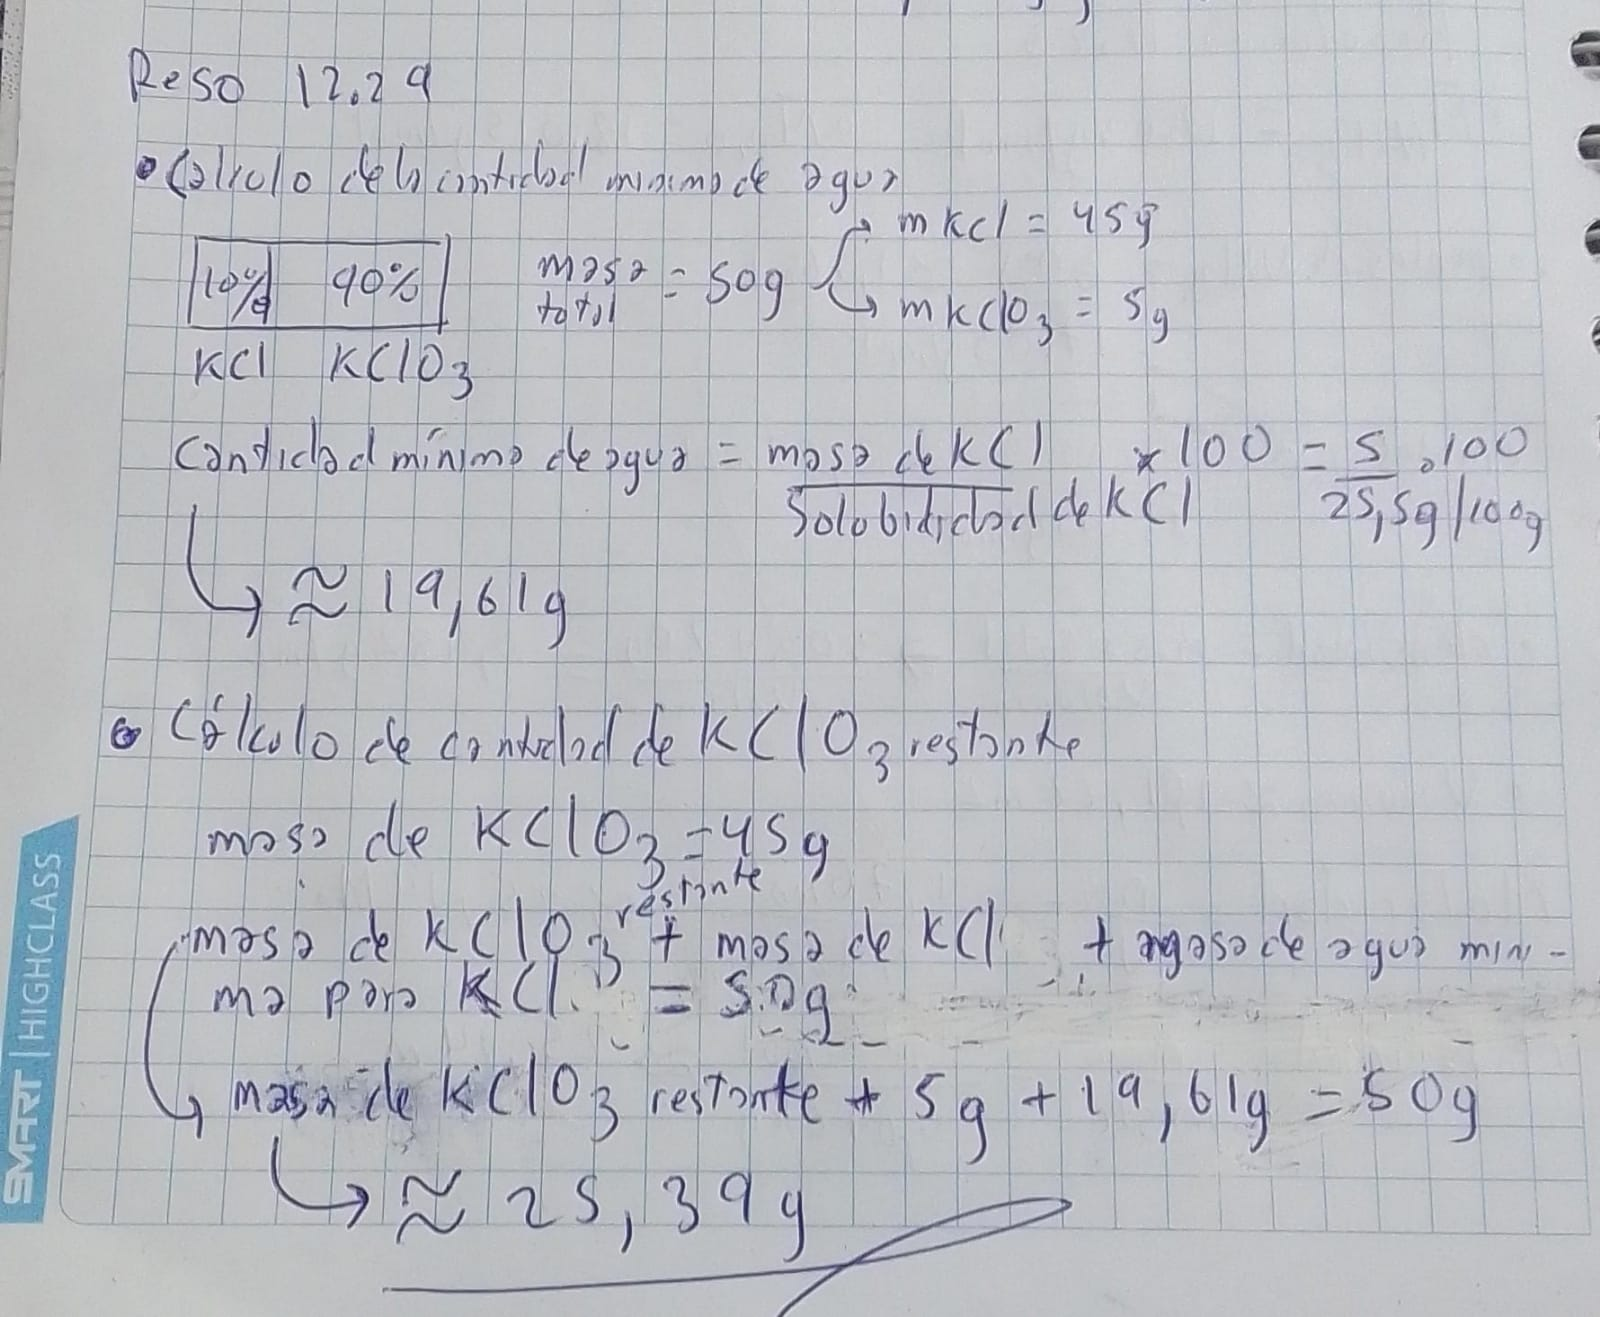 Reso 12.29
• Cálculo de la cantidad mínima de agua
mKCl = 45g
10% 90% masa total = 50g
mKClO3 = 5g
KCl KClO3
Cantidad mínima de agua = masa de KCl × 100 = 5 . 100
Solobididad de KCl 25,5g/100g
≈ 19,61g
• Cálculo de cantidad de KClO3 restante
masa de KClO3 = 45g
restante
masa de KClO3 + masa de KCl + de agua míni-
ma para KCl = 50g
masa de KClO3 restante + 5g + 19,61g = 50g
≈ 25,39g
SMART | HIGHCLASS